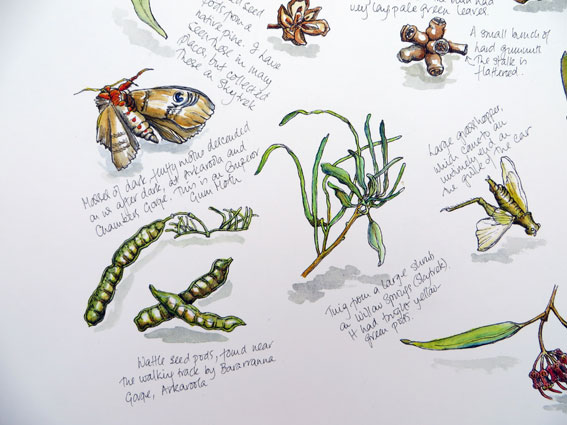 seed
pods from a
native pine. I have
seen these in many
places but collected
these on Skytrek
had
very large pale green leaves.
A small bunch of
hard gumnuts
the stalk is
flattened.
Masses of dark fluffy moths descended
on us after dark, at Arkaroola and
Chambers Gorge, this is an Emperor
Gum Moth
Large grasshopper,
which came to an
untimely end
the grille of the car
Twig from a large shrub
at Willow Springs (Skytrek).
It had bright yellow
green pods.
Wattle seed pods, found near
the walking track by Bararranna
Gorge, Arkaroola